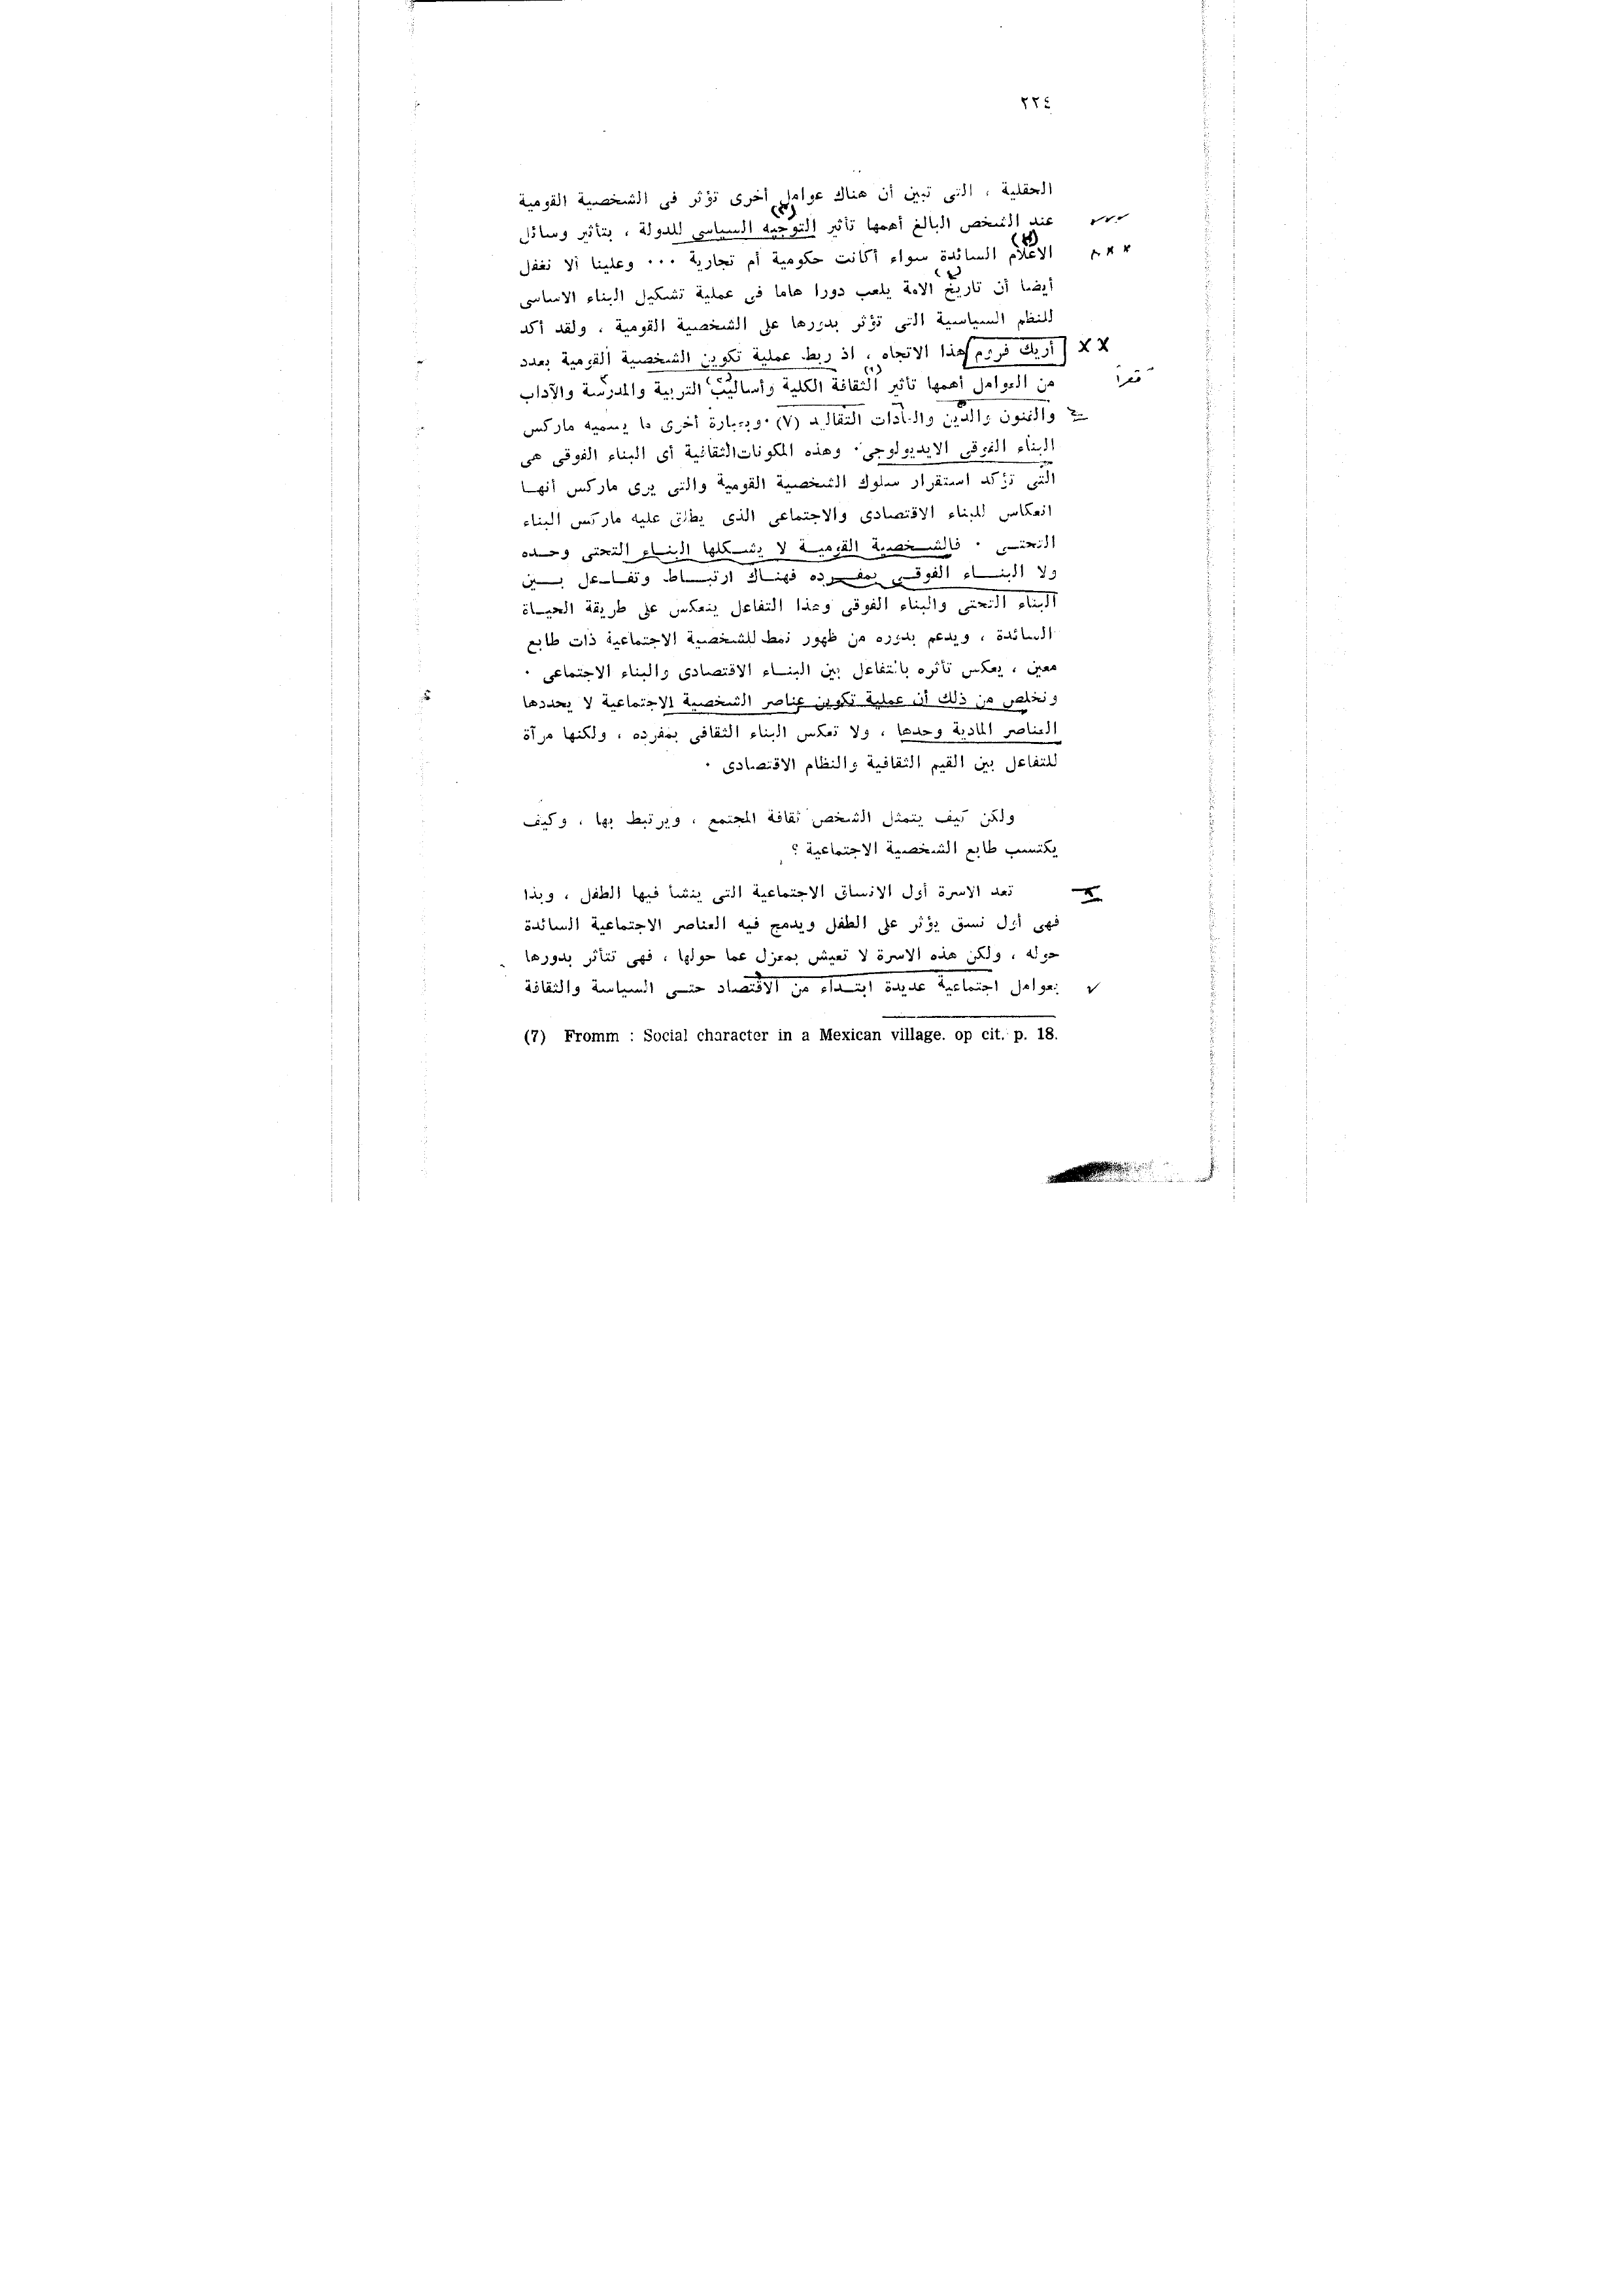 ٢٢٤
الحقلية ، التى تبين أن هناك عوامل أخرى تؤثر فى الشخصية القومية
عند الشخص البالغ أهمها تأثير التوجيه السياسى للدولة ، بتأثير وسائل
الاعلام السائدة سواء أكانت حكومية أم تجارية ٠٠٠ وعلينا ألا نغفل
أيضا أن تاريخ الامة يلعب دورا هاما فى عملية تشكيل البناء الاساسى
للنظم السياسية التى تؤثر بدورها على الشخصية القومية ، ولقد أكد
أريك فروم هذا الاتجاه ، اذ ربط عملية تكوين الشخصية القومية بعدد
من العوامل أهمها تأثير الثقافة الكلية وأساليب التربية والمدرسة والآداب
والفنون والدين والعادات التقاليد (٧) ٠ وبعبارة أخرى ما يسميه ماركس
البناء الفوقى الايديولوجى ٠ وهذه المكونات الثقافية أى البناء الفوقى هى
التى تؤكد استقرار سلوك الشخصية القومية والتى يرى ماركس أنها
انعكاس للبناء الاقتصادى والاجتماعى الذى يطلق عليه ماركس البناء
التحتى ٠ فالشخصية القومية لا يشكلها البناء التحتى وحده
ولا البناء الفوقى بمفرده فهناك ارتباط وتفاعل بين
البناء التحتى والبناء الفوقى وهذا التفاعل ينعكس على طريقة الحياة
السائدة ، ويدعم بدوره من ظهور نمط للشخصية الاجتماعية ذات طابع
معين ، يعكس تأثره بالتفاعل بين البناء الاقتصادى والبناء الاجتماعى ٠
ونخلص من ذلك أن عملية تكوين عناصر الشخصية الاجتماعية لا يحددها
العناصر المادية وحدها ، ولا تعكس البناء الثقافى بمفرده ، ولكنها مرآة
للتفاعل بين القيم الثقافية والنظام الاقتصادى ٠
ولكن كيف يتمثل الشخص ثقافة المجتمع ، ويرتبط بها ، وكيف
يكتسب طابع الشخصية الاجتماعية ؟
تعد الاسرة أول الانساق الاجتماعية التى ينشأ فيها الطفل ، وبذا
فهى أول نسق يؤثر على الطفل ويدمج فيه العناصر الاجتماعية السائدة
حوله ، ولكن هذه الاسرة لا تعيش بمعزل عما حولها ، فهى تتأثر بدورها
بعوامل اجتماعية عديدة ابتداء من الاقتصاد حتى السياسة والثقافة
(7) Fromm : Social character in a Mexican village. op cit. p. 18.